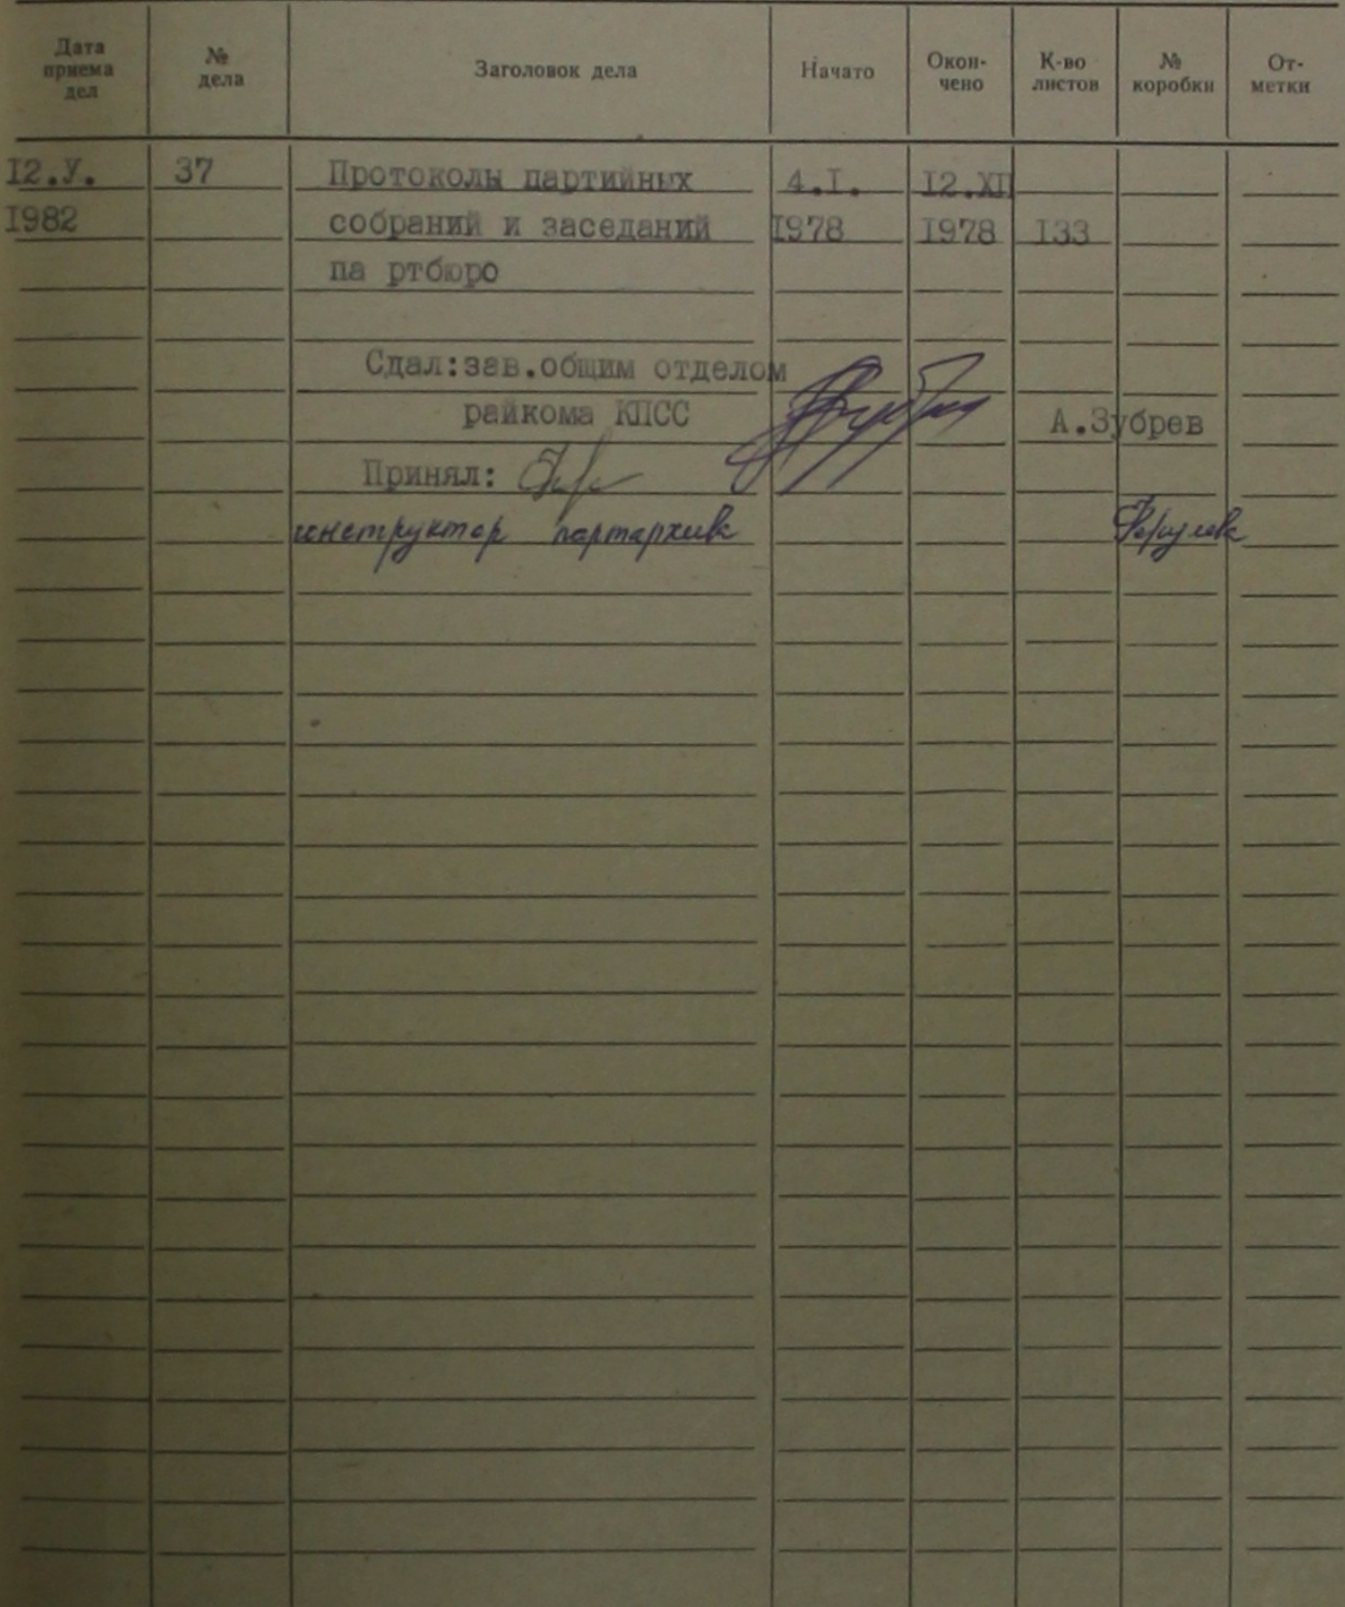 Дата приема дел № дела Заголовок дела Начато Окон- чено К-во листов № коробки От- метки
I2.У. 37 Протоколы партийных 4.I. I2.ХП
I982 собраний и заседаний I978 I978 I33
па ртбюро
Сдал:зав.общим отделом
райкома КПСС А.Зубрев
Принял:
инструктор партархива